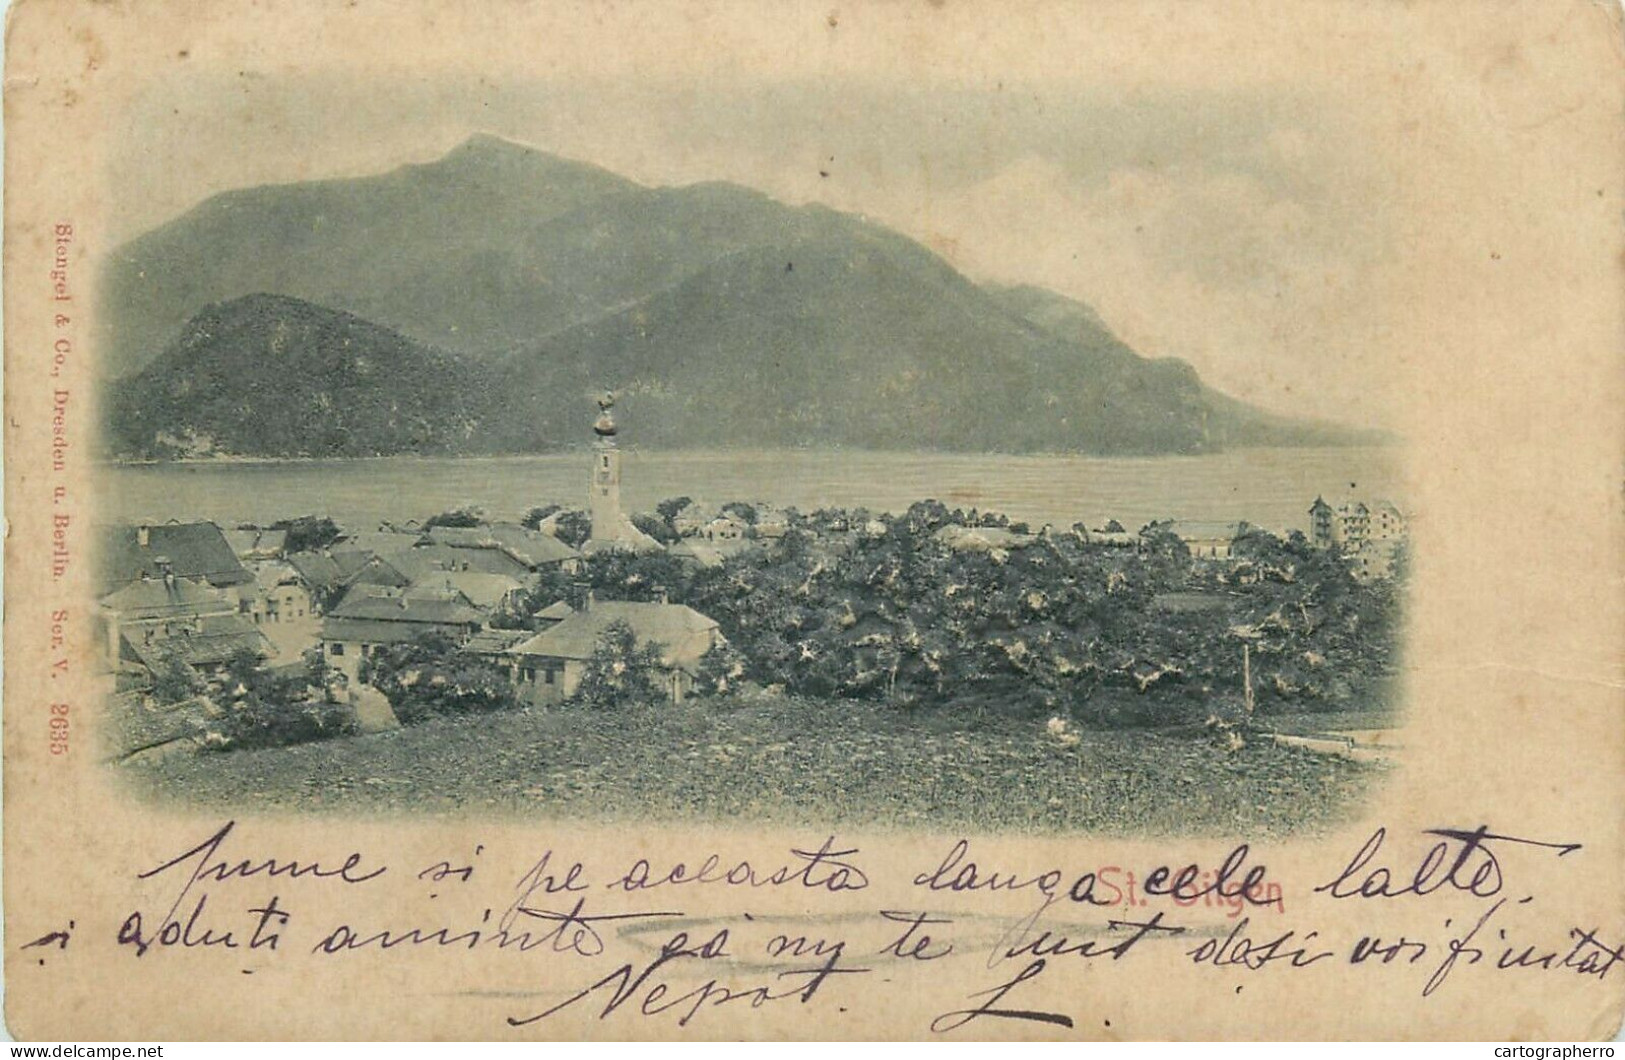 Stengel & Co., Dresden u. Berlin. Ser. V. 2635
St. Gilgen
pune si pe aceasta langa cele lalte.
si aduti aminte că nu te uit desi voi fi uitat
Nepot. L.
delcampe.net
cartographerro